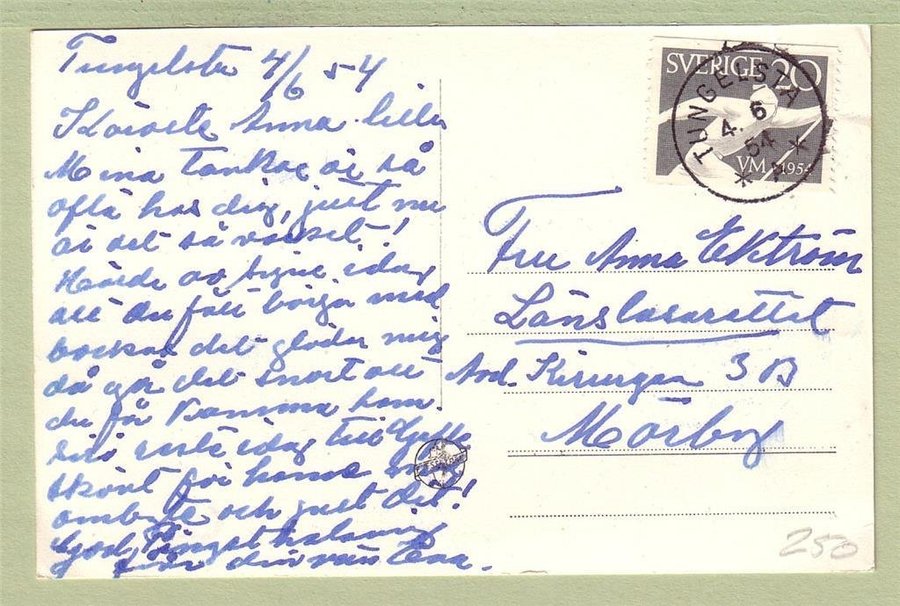 Tungelsta 4/6 54
Käraste Anna lilla
Mina tankar är så
ofta hos dig, just nu
är det så vackert!
Hörde av Signe idag
att du fått börja med
det gläder mig
då går det snart att
du får komma hem.
reste idag till
skönt för henne med
ombyte och just det!
God Pingst hälsning
från din vän Eva.
SVERIGE 20
VM 1954
TUNGELSTA
4. 6
54
Fru Anna Ekström
Länslasarettet
Avd. Kirurgen 3 B
Mörby
250